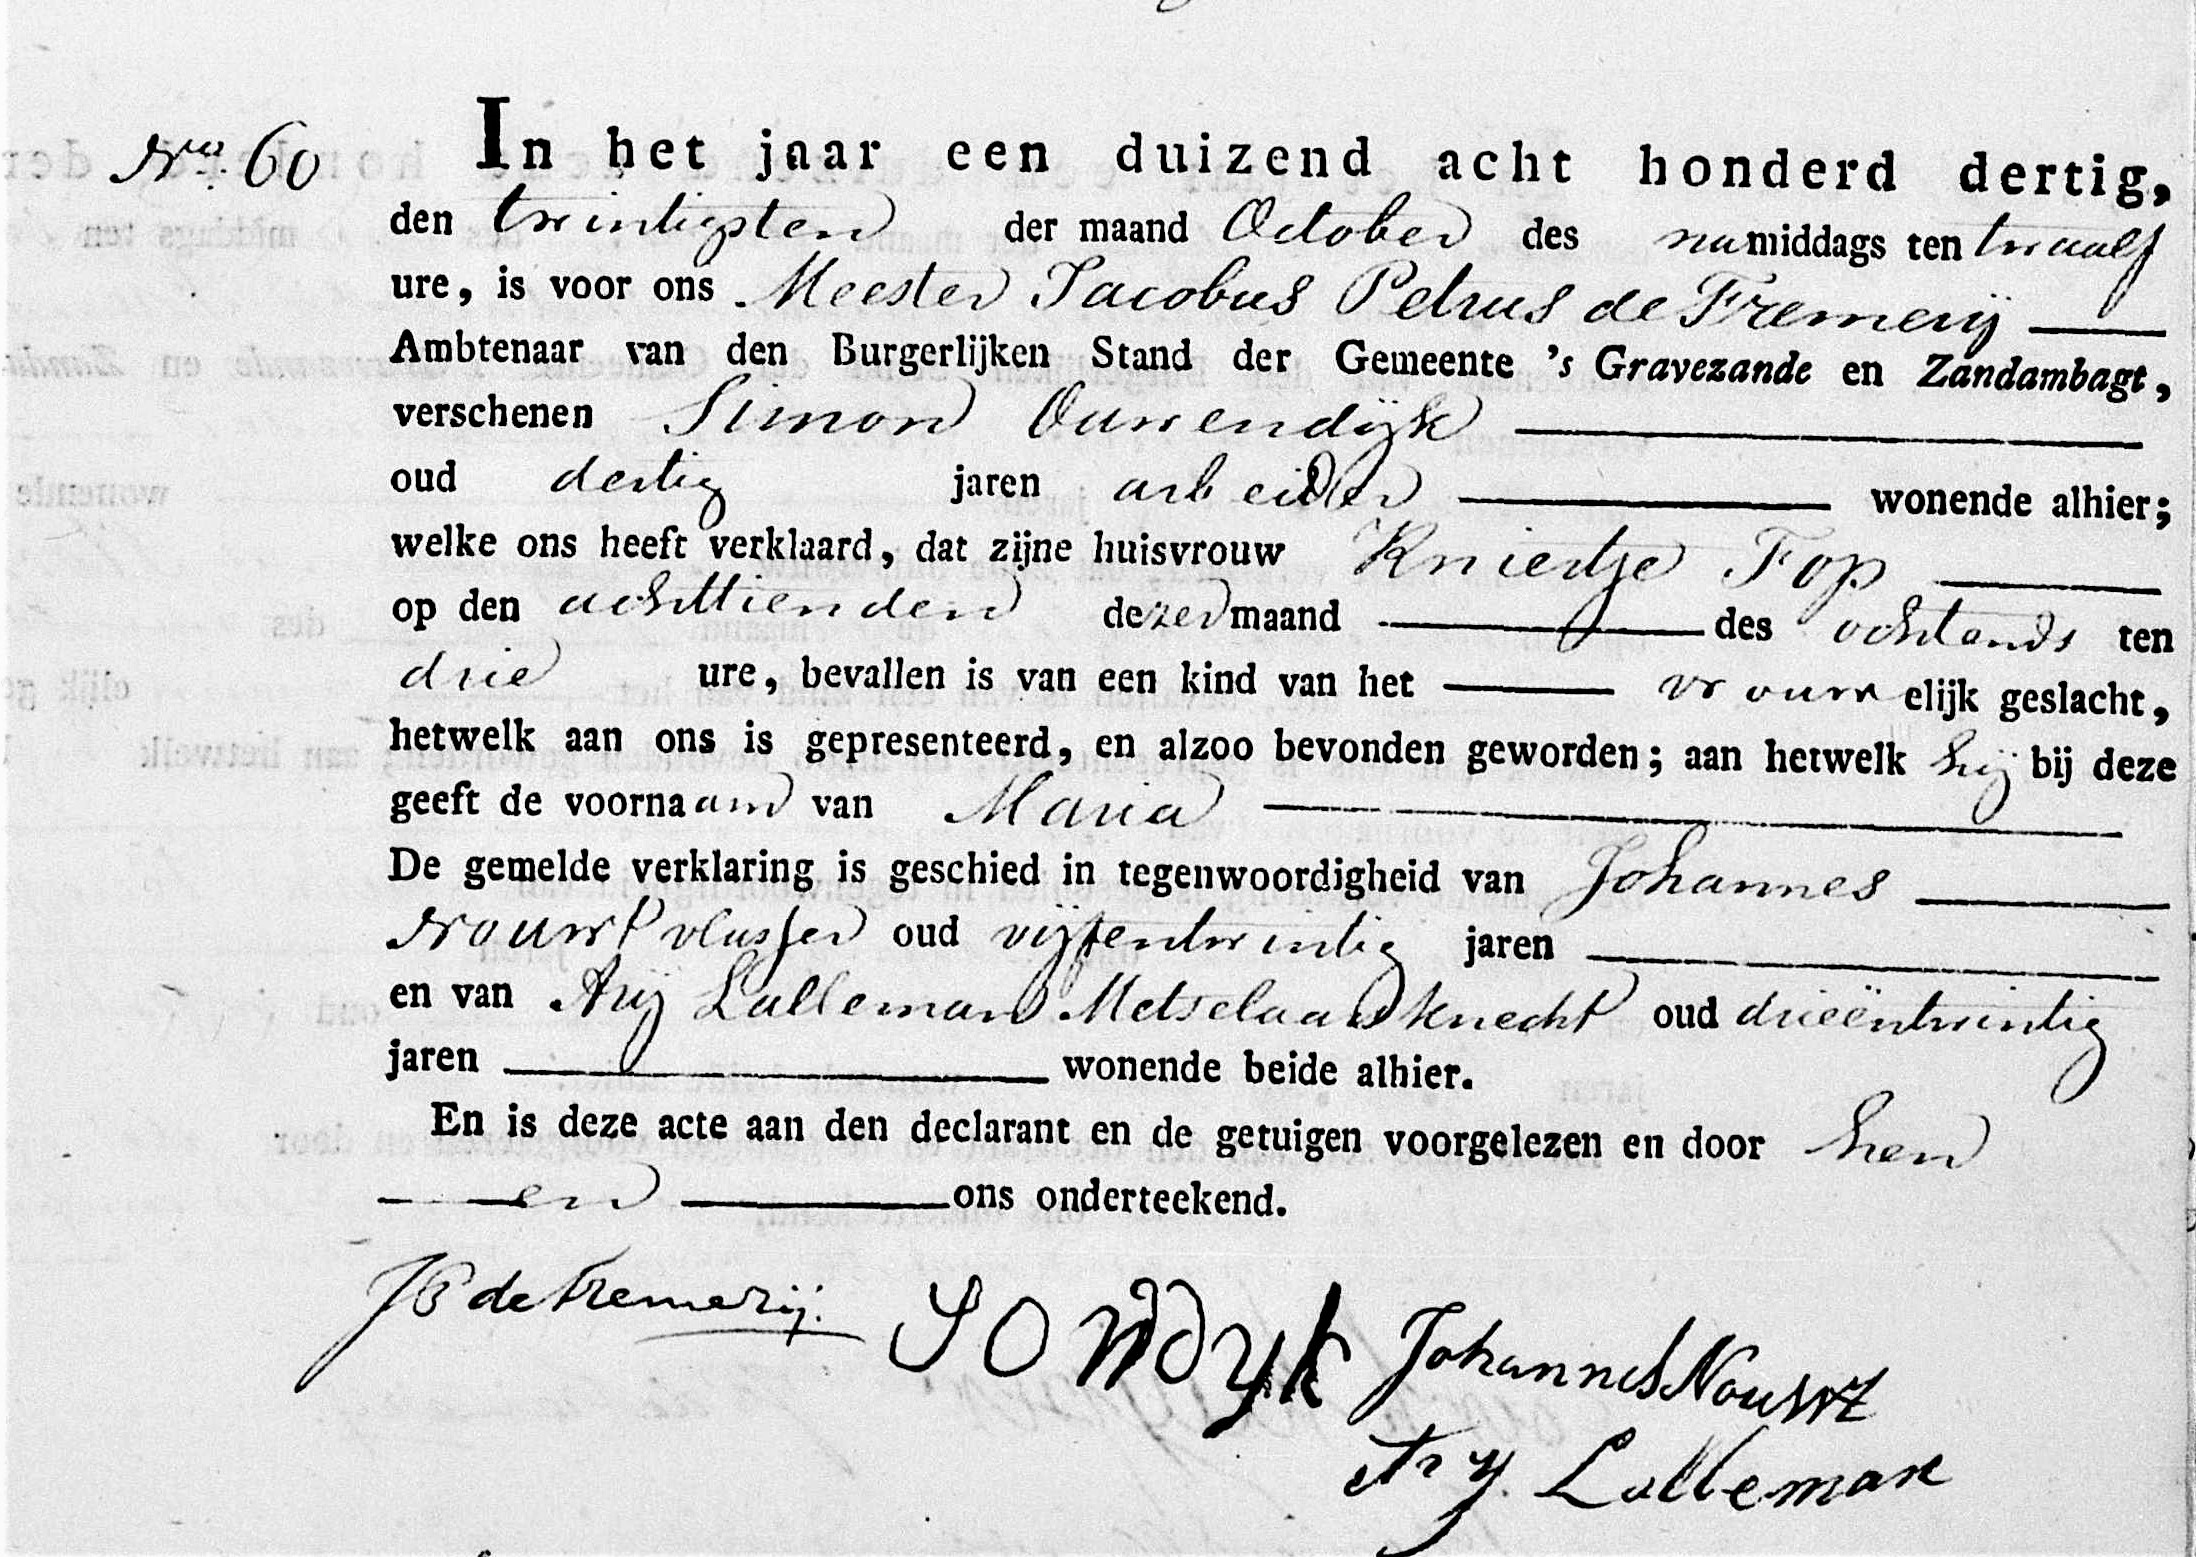 No. 60
In het jaar een duizend acht honderd dertig,
den twintigsten der maand October des namiddags ten twaalf
ure, is voor ons Meester Jacobus Petrus de Fremerij
Ambtenaar van den Burgerlijken Stand der Gemeente 's Gravezande en Zandambagt,
verschenen Simon Ouwendijk
oud dertig jaren arbeider wonende alhier;
welke ons heeft verklaard, dat zijne huisvrouw Kniertje Fop
op den achttienden dezer maand des ochtends ten
drie ure, bevallen is van een kind van het vrouwelijk geslacht,
hetwelk aan ons is gepresenteerd, en alzoo bevonden geworden; aan hetwelk hij bij deze
geeft de voornaam van Maria
De gemelde verklaring is geschied in tegenwoordigheid van Johannes
Nouwt vlasser oud vijfentwintig jaren
en van Arij Lalleman Metselaarsknecht oud drieëntwintig
jaren wonende beide alhier.
En is deze acte aan den declarant en de getuigen voorgelezen en door hen
en ons onderteekend.
JP de Fremerij. Johannes Nouwt
Ary. Lalleman